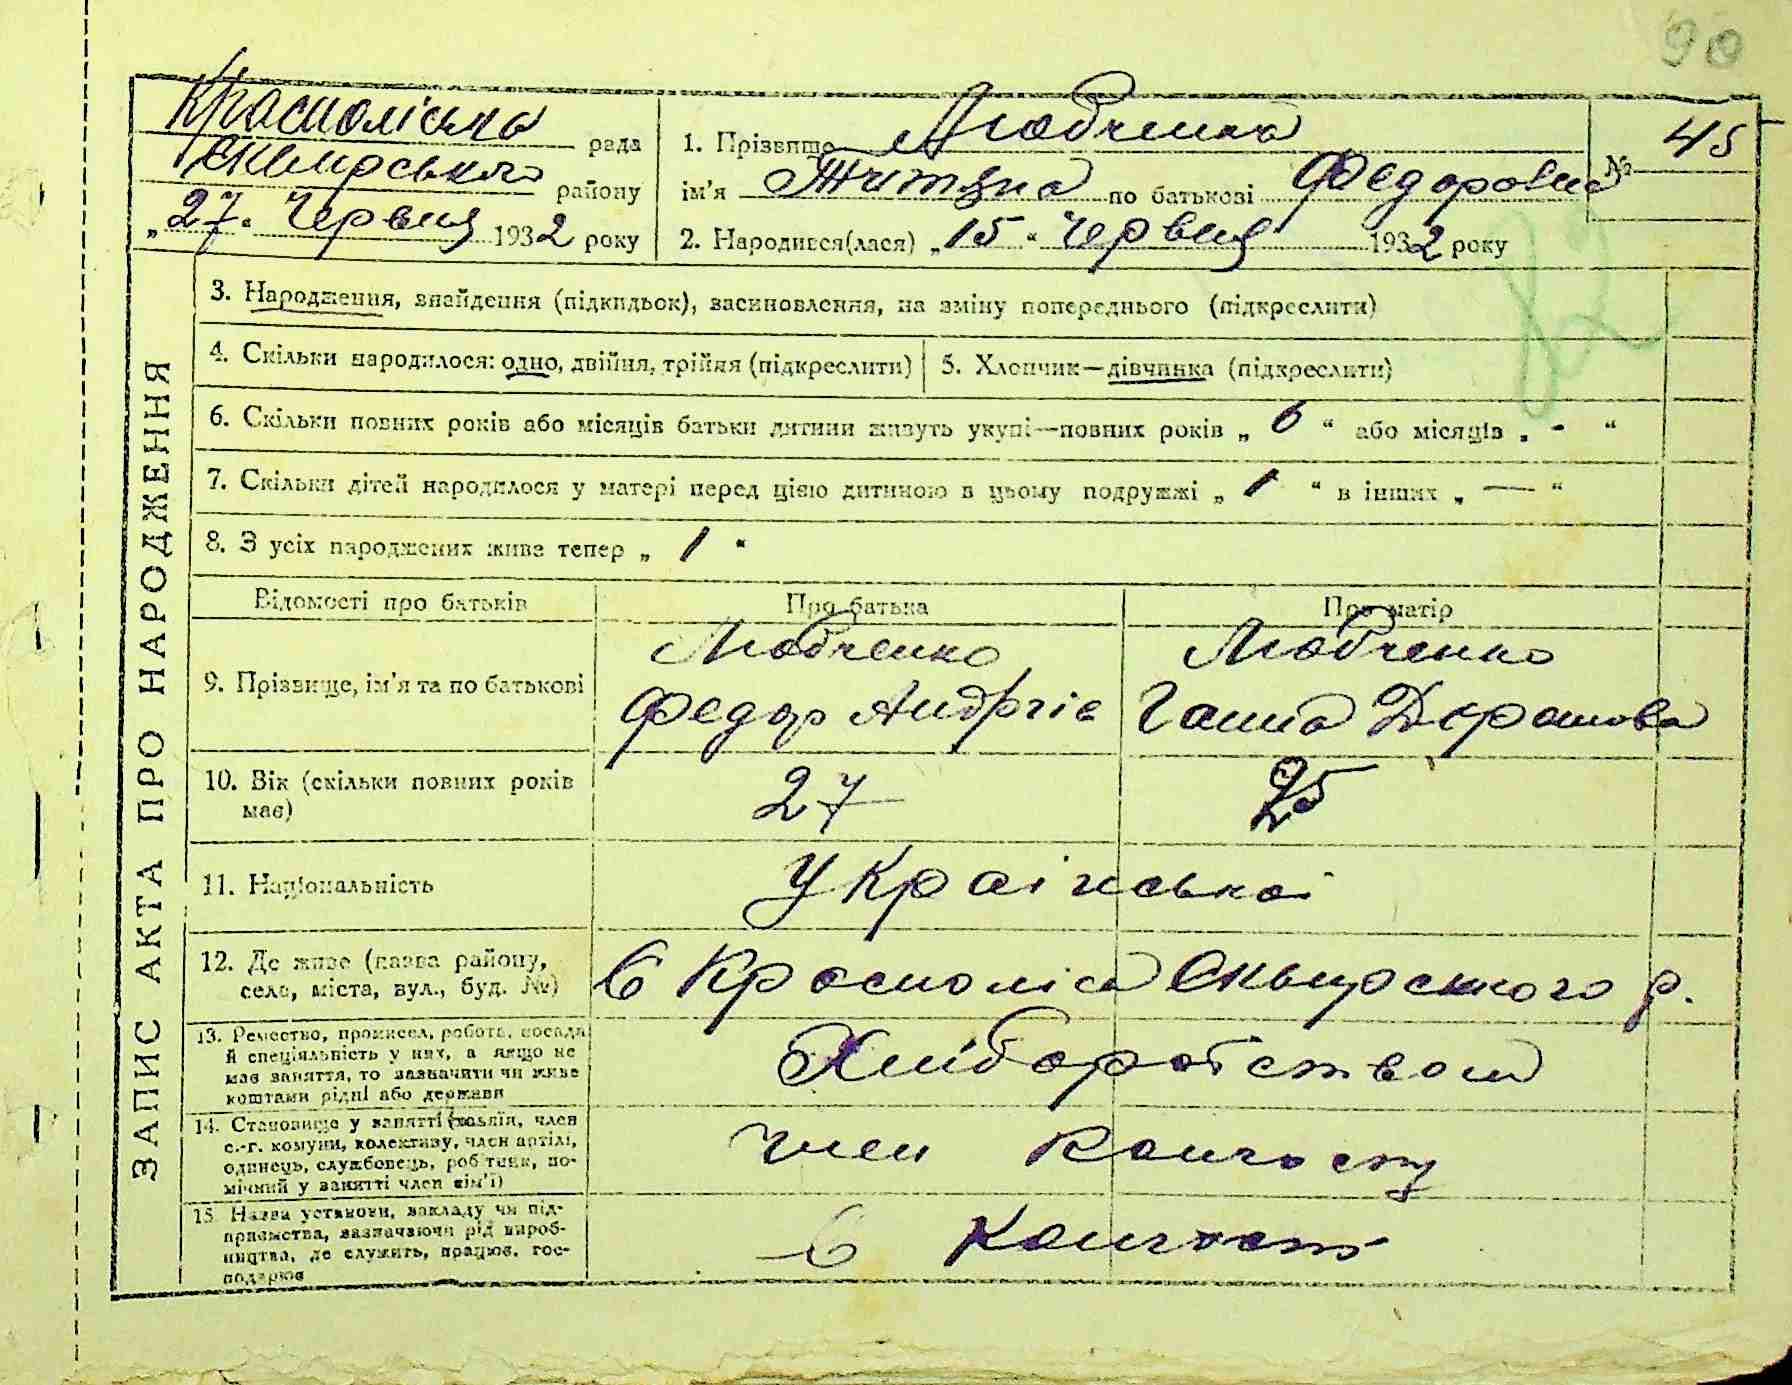 90
Красноліська рада
Сквирського району
„27“ Червня 1932 року
1. Прізвище Любченко
ім'я по батькові Федоровна
№ 45
2. Народився(лася) „15“ Червня 1932 року
ЗАПИС АКТА ПРО НАРОДЖЕННЯ
3. Народження, знайдення (підкидьок), засиновлення, на зміну попереднього (підкреслити)
4. Скільки народилося: одно, двійня, трійня (підкреслити)
5. Хлопчик—дівчинка (підкреслити)
6. Скільки повних років або місяців батьки дитини живуть укупі—повних років „ 6 “ або місяців „ - “
7. Скільки дітей народилося у матері перед цією дитиною в цьому подружжі „ 1 “ в інших „ — “
8. З усіх народжених живе тепер „ 1 “
Відомості про батьків
Про батька
Про матір
9. Прізвище, ім'я та по батькові
Любченко
Федор Андріїв
Любченко
Ганна
10. Вік (скільки повних років
має)
27
25
11. Національність
Українськоі
12. Де живе (назва району,
село, міста, вул., буд. №)
С Красноліси Сквирского р.
13. Ремество, промисел, робота, посада
й спеціяльність у них, а якщо не
має заняття, то зазначити чи живе
коштами рідні або держави
Хліборобством
14. Становище у занятті (хазяїн, член
с.-г. комуни, колективу, член артілі,
одинець, службовець, робітник, по-
мічний у занятті член сім'ї)
член колгоспу
15. Назва установи, закладу чи під-
приємства, зазначаючи рід вироб-
ництва, де служить, працює, гос-
подарює
в колгоспі